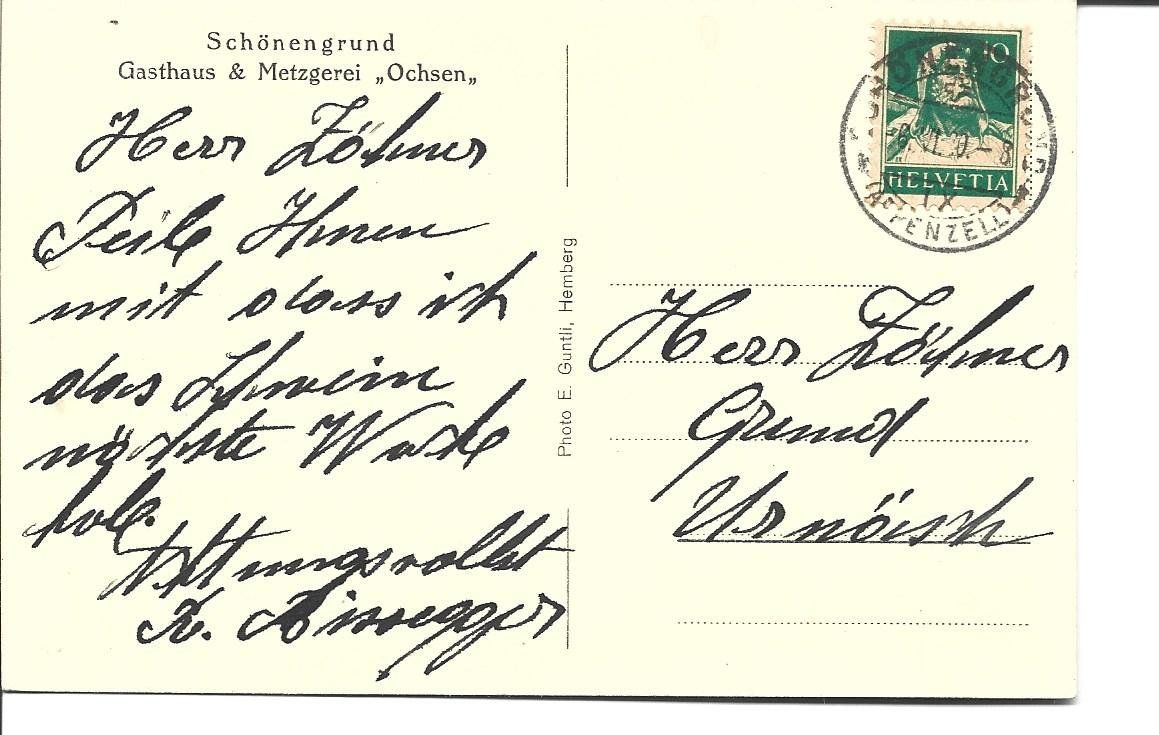 Schönengrund
Gasthaus & Metzgerei „Ochsen„
Herr Zöhner
Teile Ihnen
mit dass ich
das Schwein
nächste Woche
hole.
Achtungsvollst
K.
Photo E. Guntli, Hemberg
10
HELVETIA
SCHÖNENGRUND
(APPENZELL)
Herr Zöhner
Grund
Urnäsch